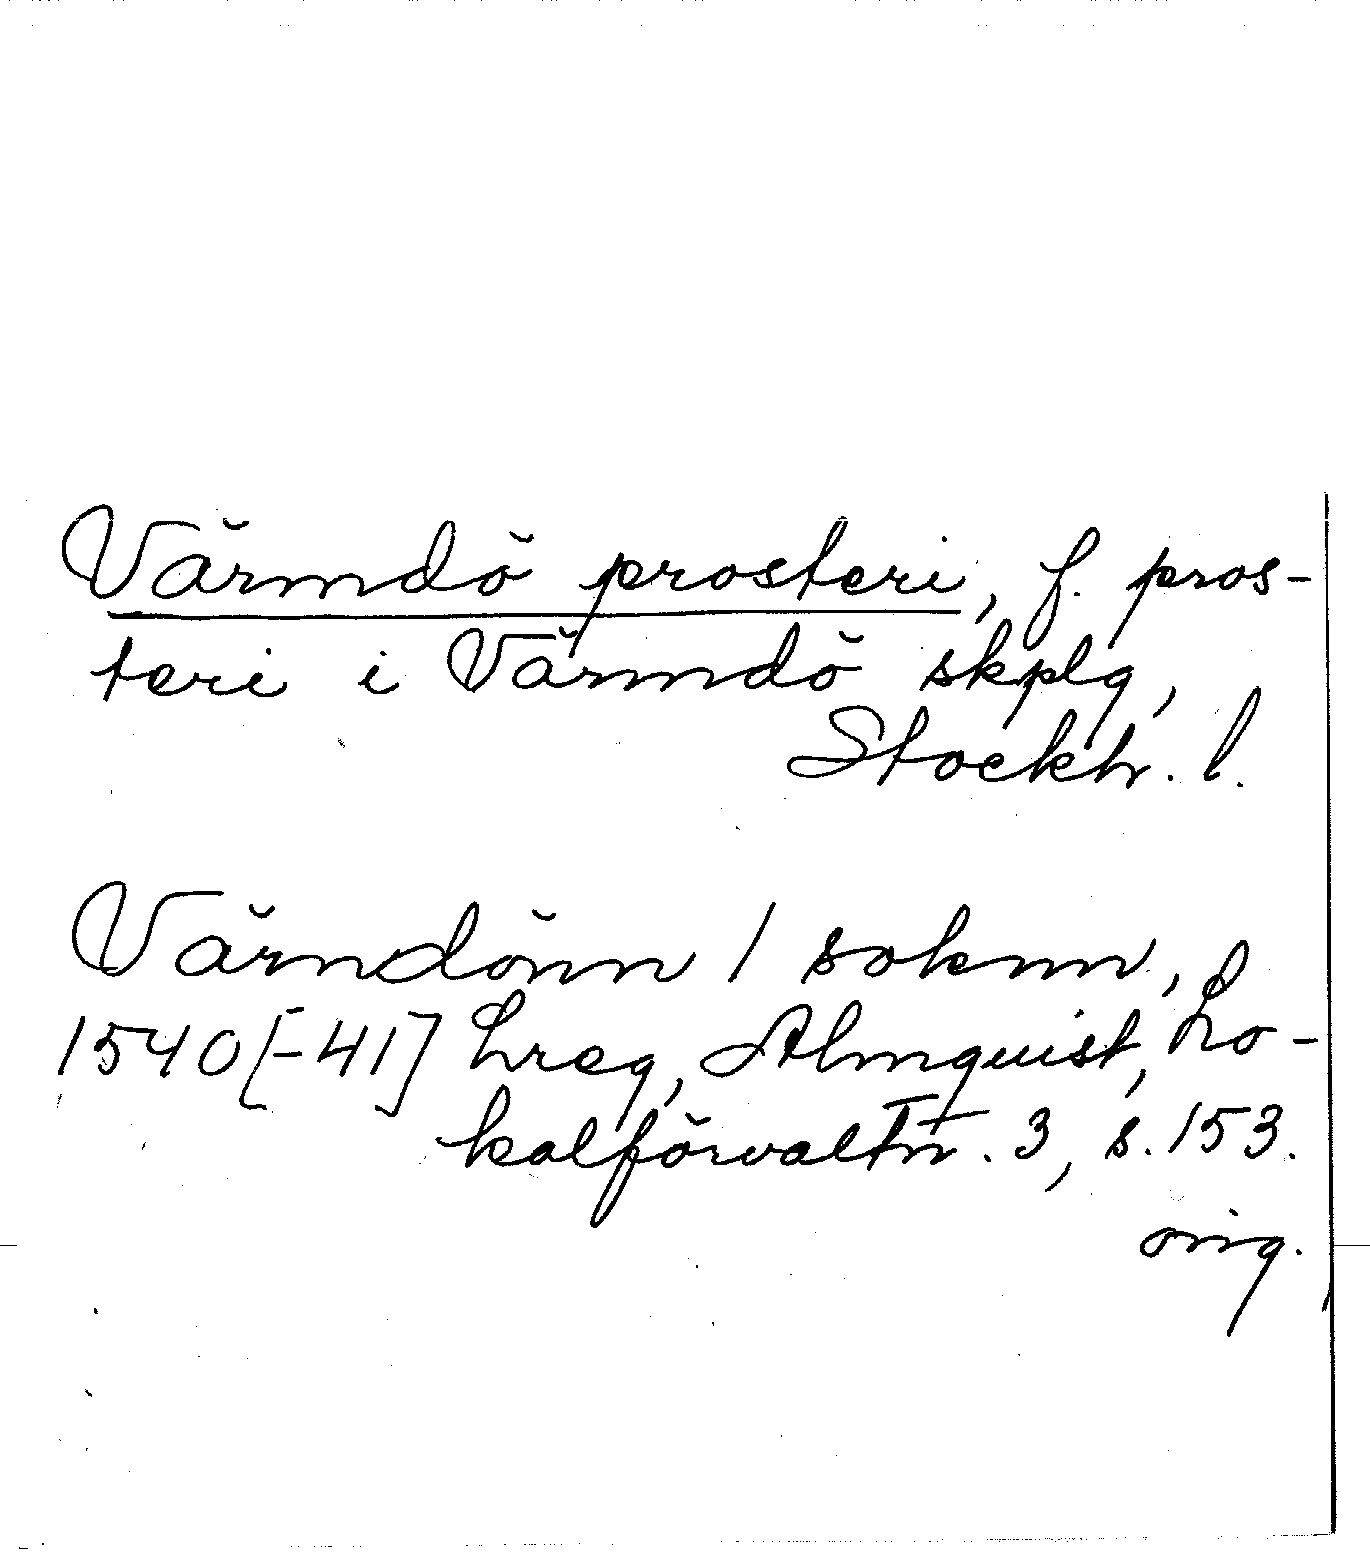 Värmdö prosteri, f. pros-
teri i Värmdö skplg,
Stockh. l.
Värndönn / soknn,
1540[-41] hreg, Almquist, Lo-
kalförvaltn. 3, s. 153.
orig.